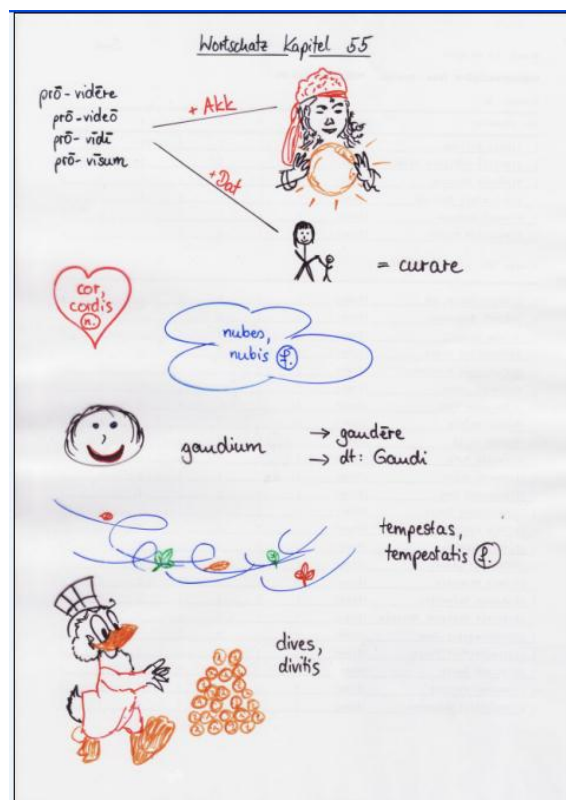 Wortschatz Kapitel 55
prō-vidēre
prō-videō
prō-vīdī
prō-vīsum
+ Akk
+ Dat
= curare
cor,
cordis
n.
nubes,
nubis f.
gaudium
→ gaudēre
→ dt: Gaudi
tempestas,
tempestatis f.
dives,
divitis